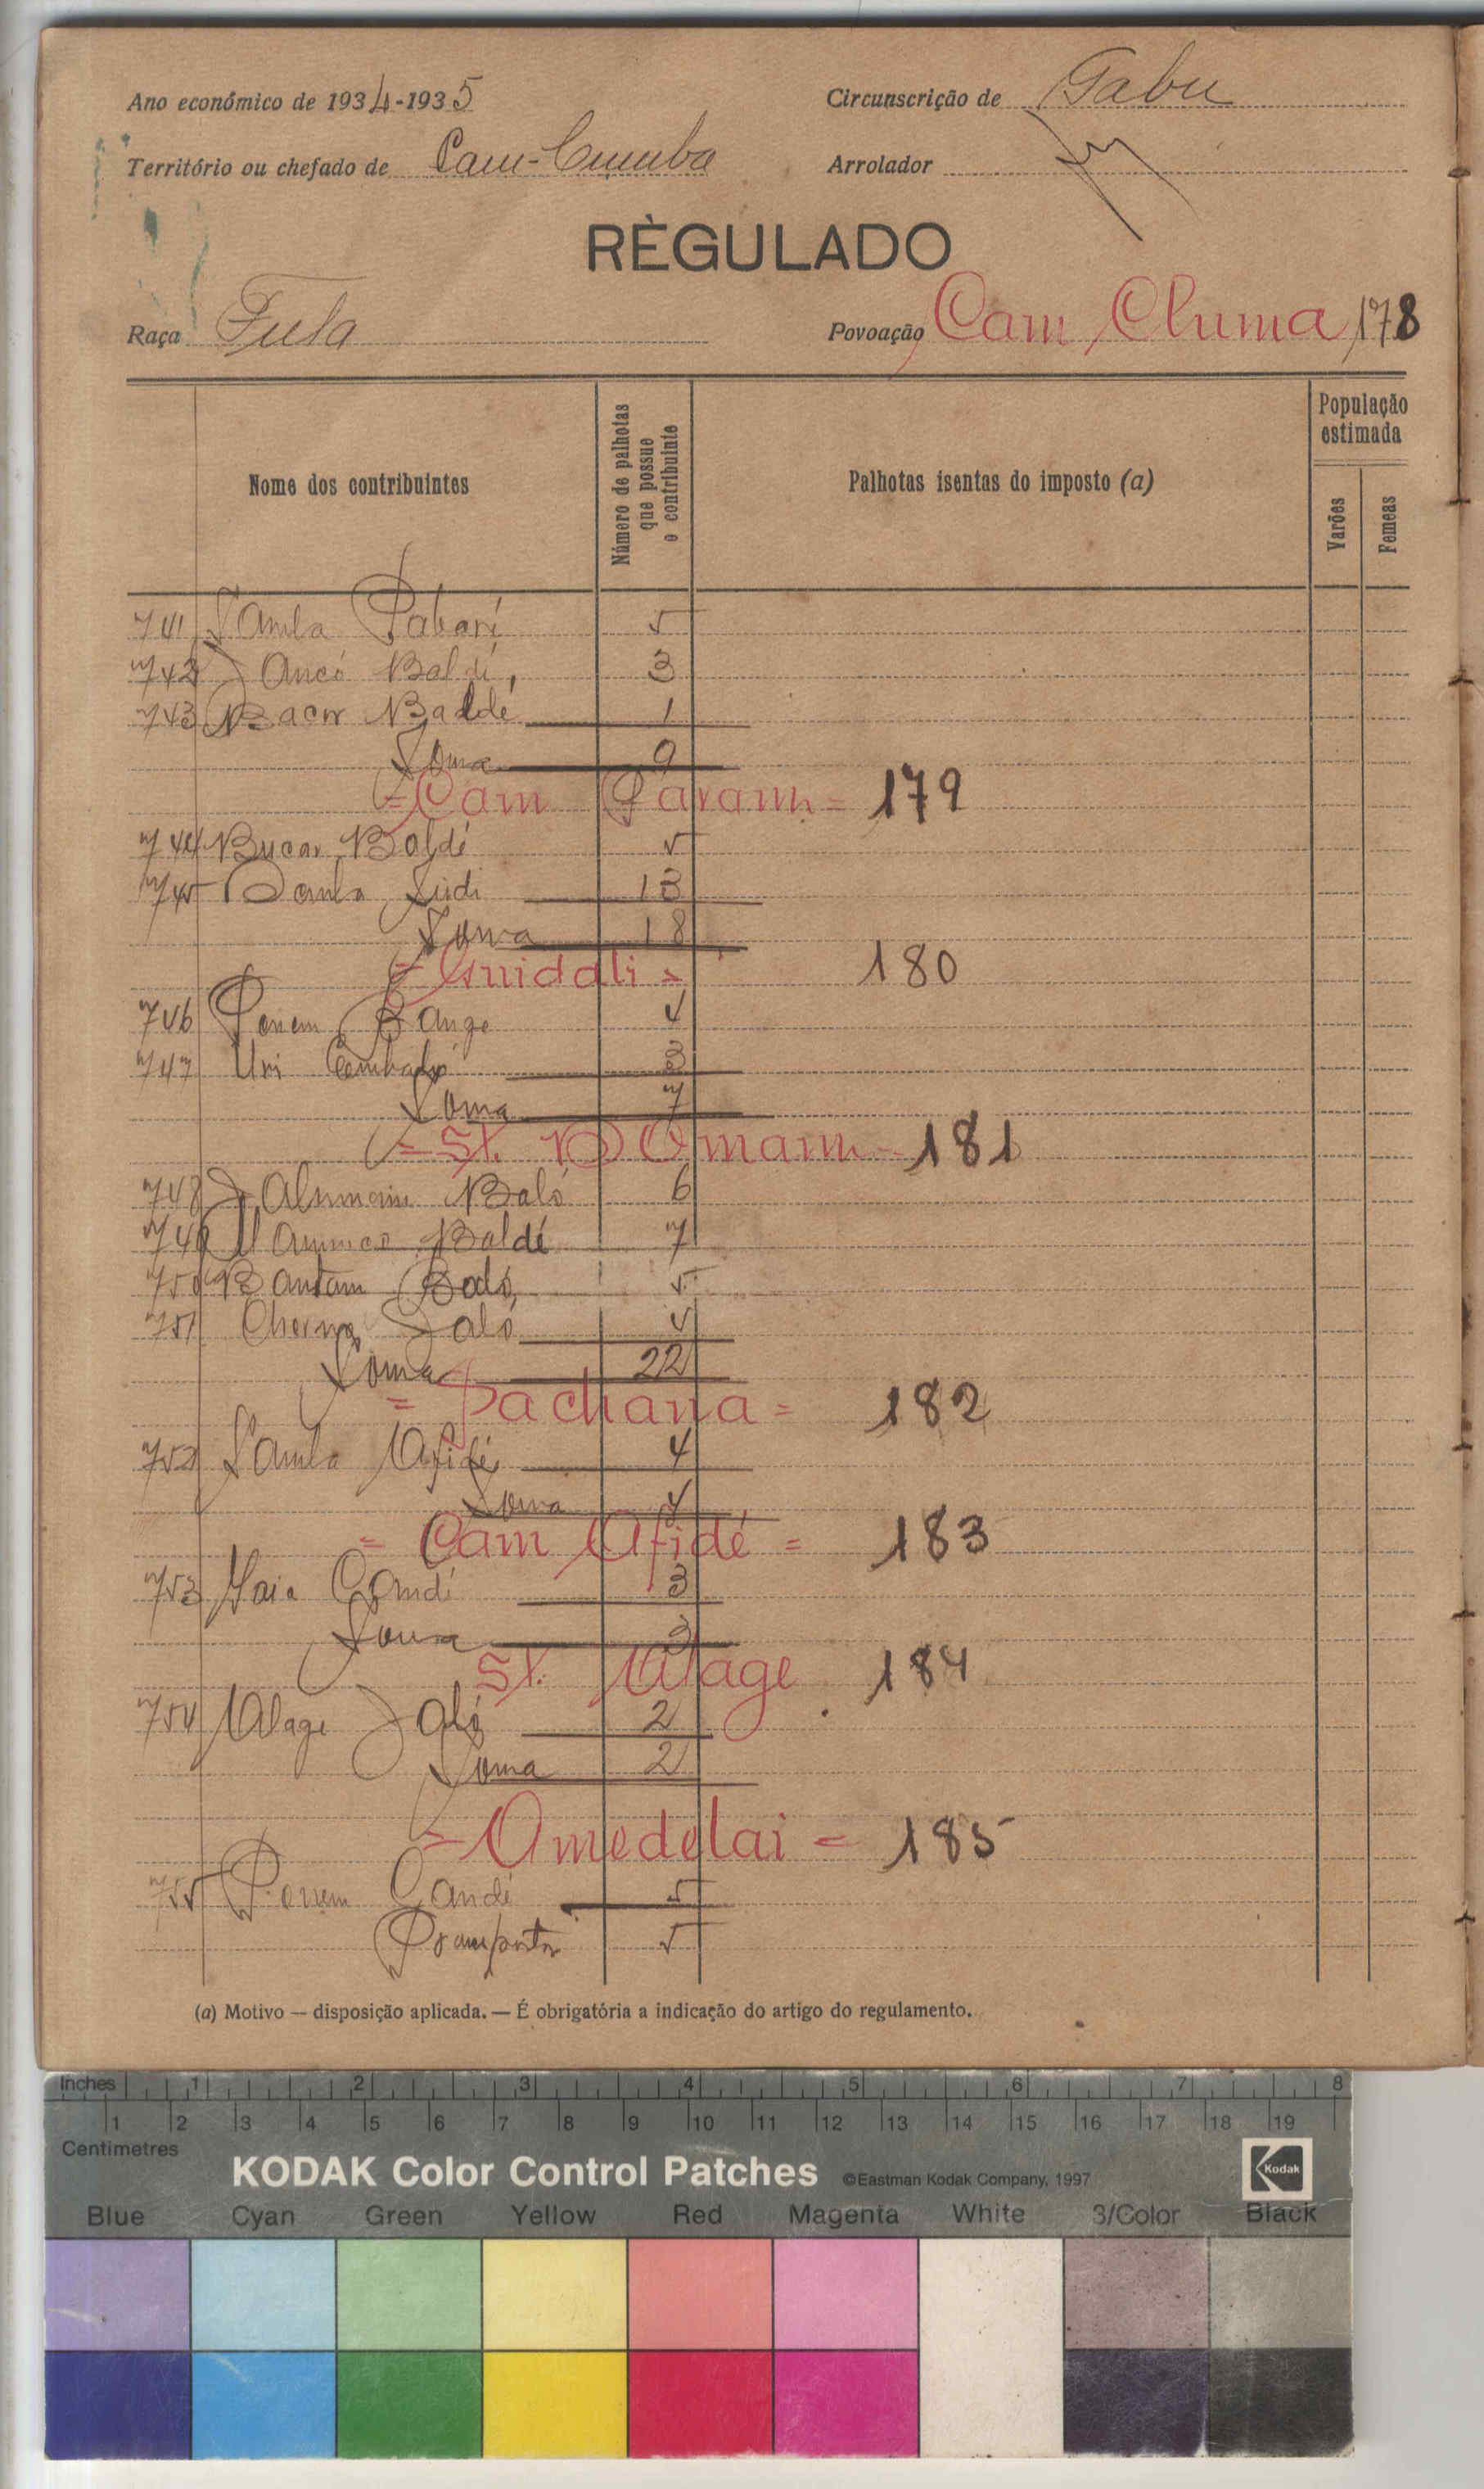 Ano económico de 1934-1935 Circunscrição de Gabu
Território ou chefado de Cam-Cumba Arrolador
RÈGULADO
Raça Fula Povoação Cam Chuma 178
Nome dos contribuintes
Número de palhotas que possue o contribuinte
Palhotas isentas do imposto (a)
População estimada
Varões
Femeas
741 Samba 5
742 Baldé 3
743 Baldé 1
Soma 9
= Cam = 179
744 Bucar Baldé 5
745 Samba 13
Soma 18
= Guidali = 180
746 Penem 4
747 Uri 3
Soma 7
= St. 181
748 Baló 6
749 Baldé 7
750 5
751 Cherno Jaló 4
Soma 22
= Pachana = 182
752 Samba Afidé 4
Soma 4
= Cam Afidé = 183
753 Candé 3
Soma 3
St. Alage 184
754 Alage Jaló 2
Soma 2
= Omedelai = 185
755 Penem Candé 5
5
(a) Motivo — disposição aplicada. — É obrigatória a indicação do artigo do regulamento.
Inches 1 2 3 4 5 6 7 8
1 2 3 4 5 6 7 8 9 10 11 12 13 14 15 16 17 18 19
Centimetres
KODAK Color Control Patches ©Eastman Kodak Company, 1997 Kodak
Blue Cyan Green Yellow Red Magenta White 3/Color Black